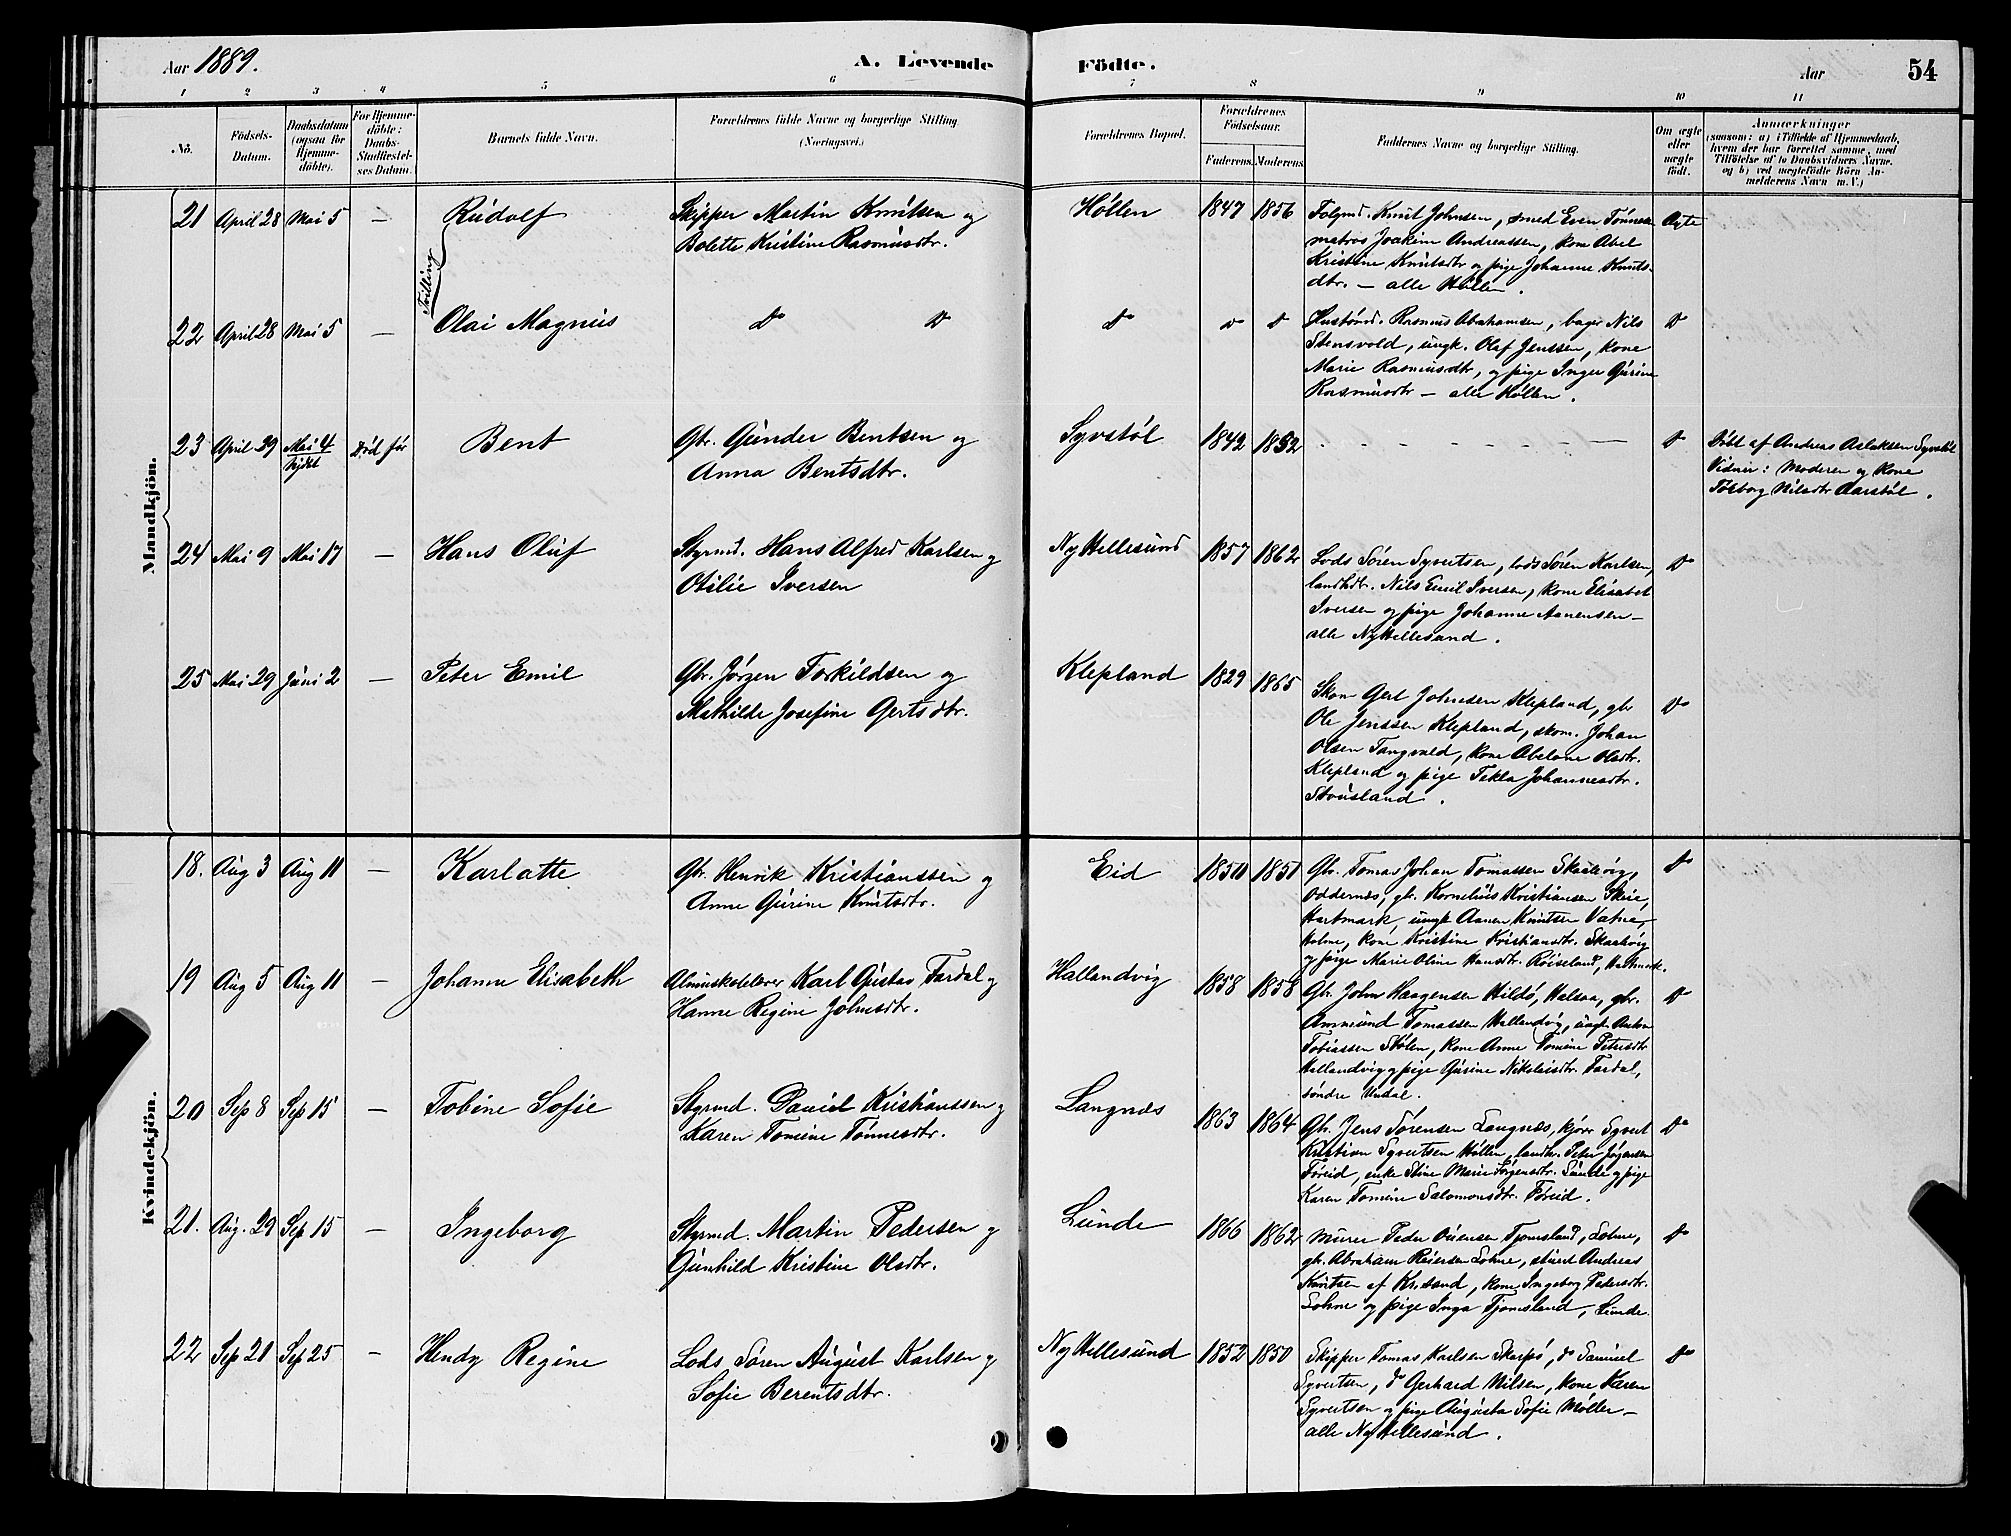 Aar 1889.
A. Levende Födte.
Aar
54
1 2 3 4 5 6 7 8 9 10 11
No.
Födsels-Datum.
Daabsdatum (ogsaa for Hjemmedöbte).
For Hjemmedöbte: Daabs-Stadfæstelses Datum.
Barnets fulde Navn.
Forældrenes fulde Navne og borgerlige Stilling (Næringsvei.)
Forældrenes Bopæl.
Forældrenes Födselsaar. Faderens. Moderens.
Faddernes Navne og borgerlige Stilling.
Om ægte eller uægte födt.
Anmærkninger
(saasom: a) i Tilfælde af Hjemmedaab,
hvem der har forrettet samme, med
Tilföielse af to Daabsvidners Navne.
og b) ved uægtefödte Börn An-
melderens Navn m. V.)
Mandkjön.
21 April 28 Mai 5 — Rudolf
Skipper Martin Knutsen og
Bolette Kristine Rasmusdtr.
Høllen 1847 1856
Folgmd. Knut Johnsen, smed Even Tønnes
matros Joakim Andreassen, kone Abel
Kristine Knutsdtr og pige Johanne Knuts-
dtr. — alle Høllen.
Ægte
Tvilling
22 April 28 Mai 5 — Olai Magnus
do do
do do do
Husbond. Rasmus Abrahamsen, bager Nils
Stensvold, ungk. Olaf Jenssen, kone
Marie Rasmusdtr, og pige Inger Gurine
Rasmusdtr — alle Høllen.
do
23 April 29 Mai 4 hjdbt Død før Bent
Gbr. Gunder Bentsen og
Anna Bentsdtr.
Syvstøl 1842 1852
do
Døbt af Andreas Aslaksen Syvstøl
Vidner: Moderen og kone
Tolborg Nilsdtr Aarstøl.
24 Mai 9 Mai 17 — Hans Oluf
Styrmd. Hans Alfred Karlsen og
Otilie Iversen
Ny Hellesund 1857 1862
Lods Søren Syvertsen, lods Søren Karlsen,
landhdr. Nils Emil Iversen, kone Elisabet
Iversen og pige Johanne Aanensen —
alle Ny Hellesund.
do
25 Mai 29 Juni 2 — Peter Emil
Gbr. Jørgen Torkildsen og
Mathilde Josefine Gertsdtr.
Klepland 1829 1865
Skom Gert Johnsen Klepland, gbr
Ole Jenssen Klepland, skom. Johan
Olsen Tangvald, kone Abelone Olsdtr.
Klepland og pige Tekla Johannesdtr.
Stousland.
do
Kvindekjön.
18. Aug 3 Aug 11 — Karlotte
Gbr. Henrik Kristianssen og
Anne Gurine Knutsdtr.
Eid 1850 1851
Gbr. Tomas Johan Tomassen Skaalevig,
Oddernes, gbr. Kornelius Kristiansen Skeie,
Hartmark, ungk Aanen Knutsen Vatne,
Holme, kone Kristine Kristiansdtr. Skaalevig
og pige Marie Oline Hansdtr. Røiseland, Hartmark.
do
19 Aug 5 Aug 11 Johanne Elisabeth
Almueskolelærer Karl Gustav Fardal og
Hanne Regine Johnsdtr.
Hallandvig 1858 1858
Gbr. John Haagensen Hildø, Halsaa, gbr.
Ammund Tomassen Hallandvig, ungk. Anton
Tobiassen Stølen, kone Anne Tomine Petersdtr
Hallandvig og pige Gurine Nikolaisdtr. Fardal,
søndre Undal.
do
20 Sep 8 Sep 15 — Tobine Sofie
Styrmd. Daniel Kristianssen og
Karen Tomine Tønnesdtr.
Langnæs 1863 1864
Gbr. Jens Sørensen Langnæs, kjører Syvert
Kristian Syvertsen Høllen, landhr. Peter Jørgensen
Føreid, enke Stine Marie Jørgensdtr. Lunde og pige
Karen Tomine Salomonsdtr. Føreid.
do
21. Aug. 29 Sep 15 — Ingeborg
Styrmd. Martin Pedersen og
Gunhild Kristine Olsdtr.
Lunde 1866 1862
Murer Peder Ouensen Tjomsland, Lohne,
gbr. Abraham Reiersen Lohne, stuert Andreas
Knutsen af Krsand, kone Ingeborg Pedersdtr.
Lohne og pige Inga Tjomsland, Lunde.
do
22 Sep 21 Sep 25 — Hendy Regine
Lods Søren August Karlsen og
Sofie Berentsdtr.
Ny Hellesund 1852 1850
Skipper Tomas Karlsen Skarpø, do Samuel
Syvertsen, do Gerhard Nilsen, kone Karen
Syvertsen og pige Augusta Sofie Møller —
alle Ny Hellesund.
do